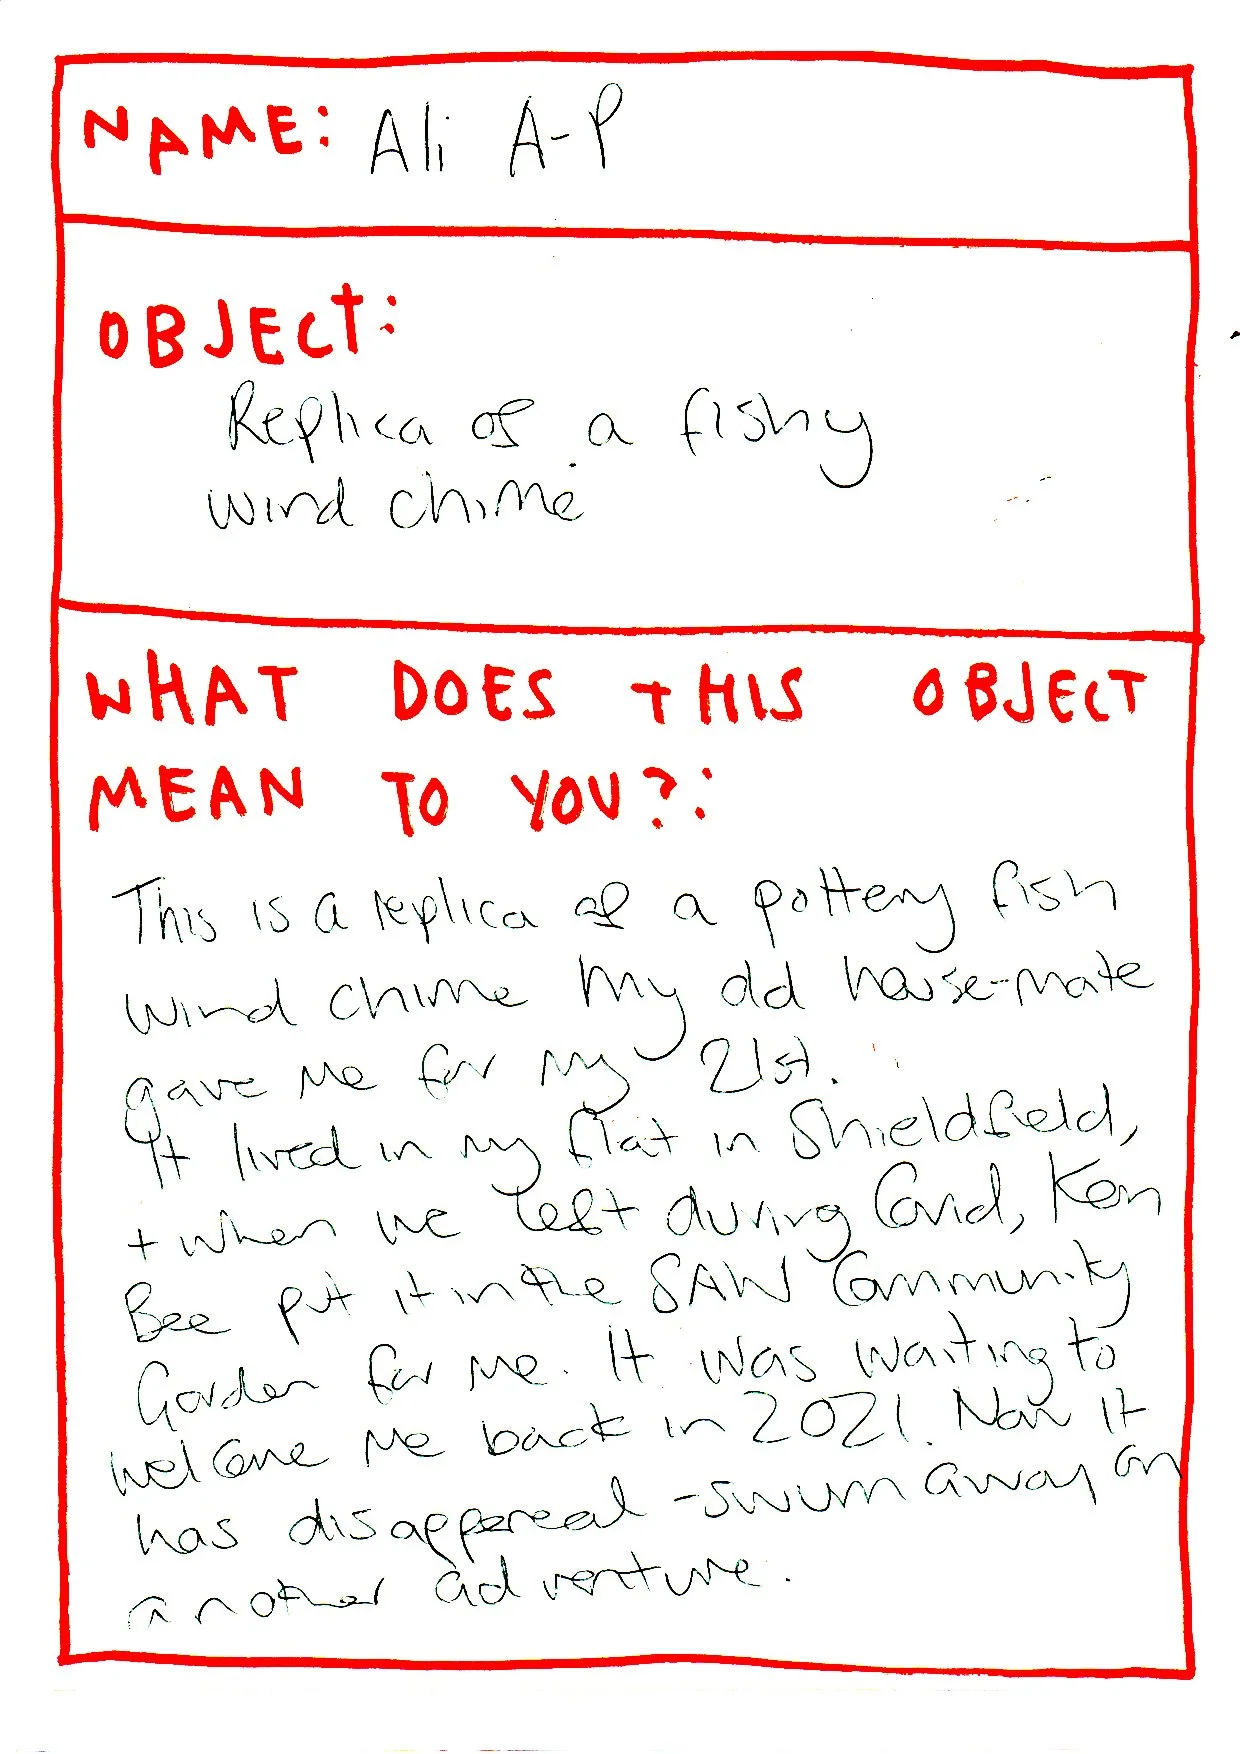 NAME: Ali A-P
OBJECT:
Replica of a fishy
wind chime
WHAT DOES THIS OBJECT
MEAN TO YOU?:
This is a replica of a pottery fish
wind chime my old house-mate
gave me for my 21st.
It lived in my flat in Shieldfield,
+ when we left during Covid, Ken
Bee put it in the SAW Community
Garden for me. It was waiting to
welcome me back in 2021. Now it
has disappereal - swum away on
another adventure.